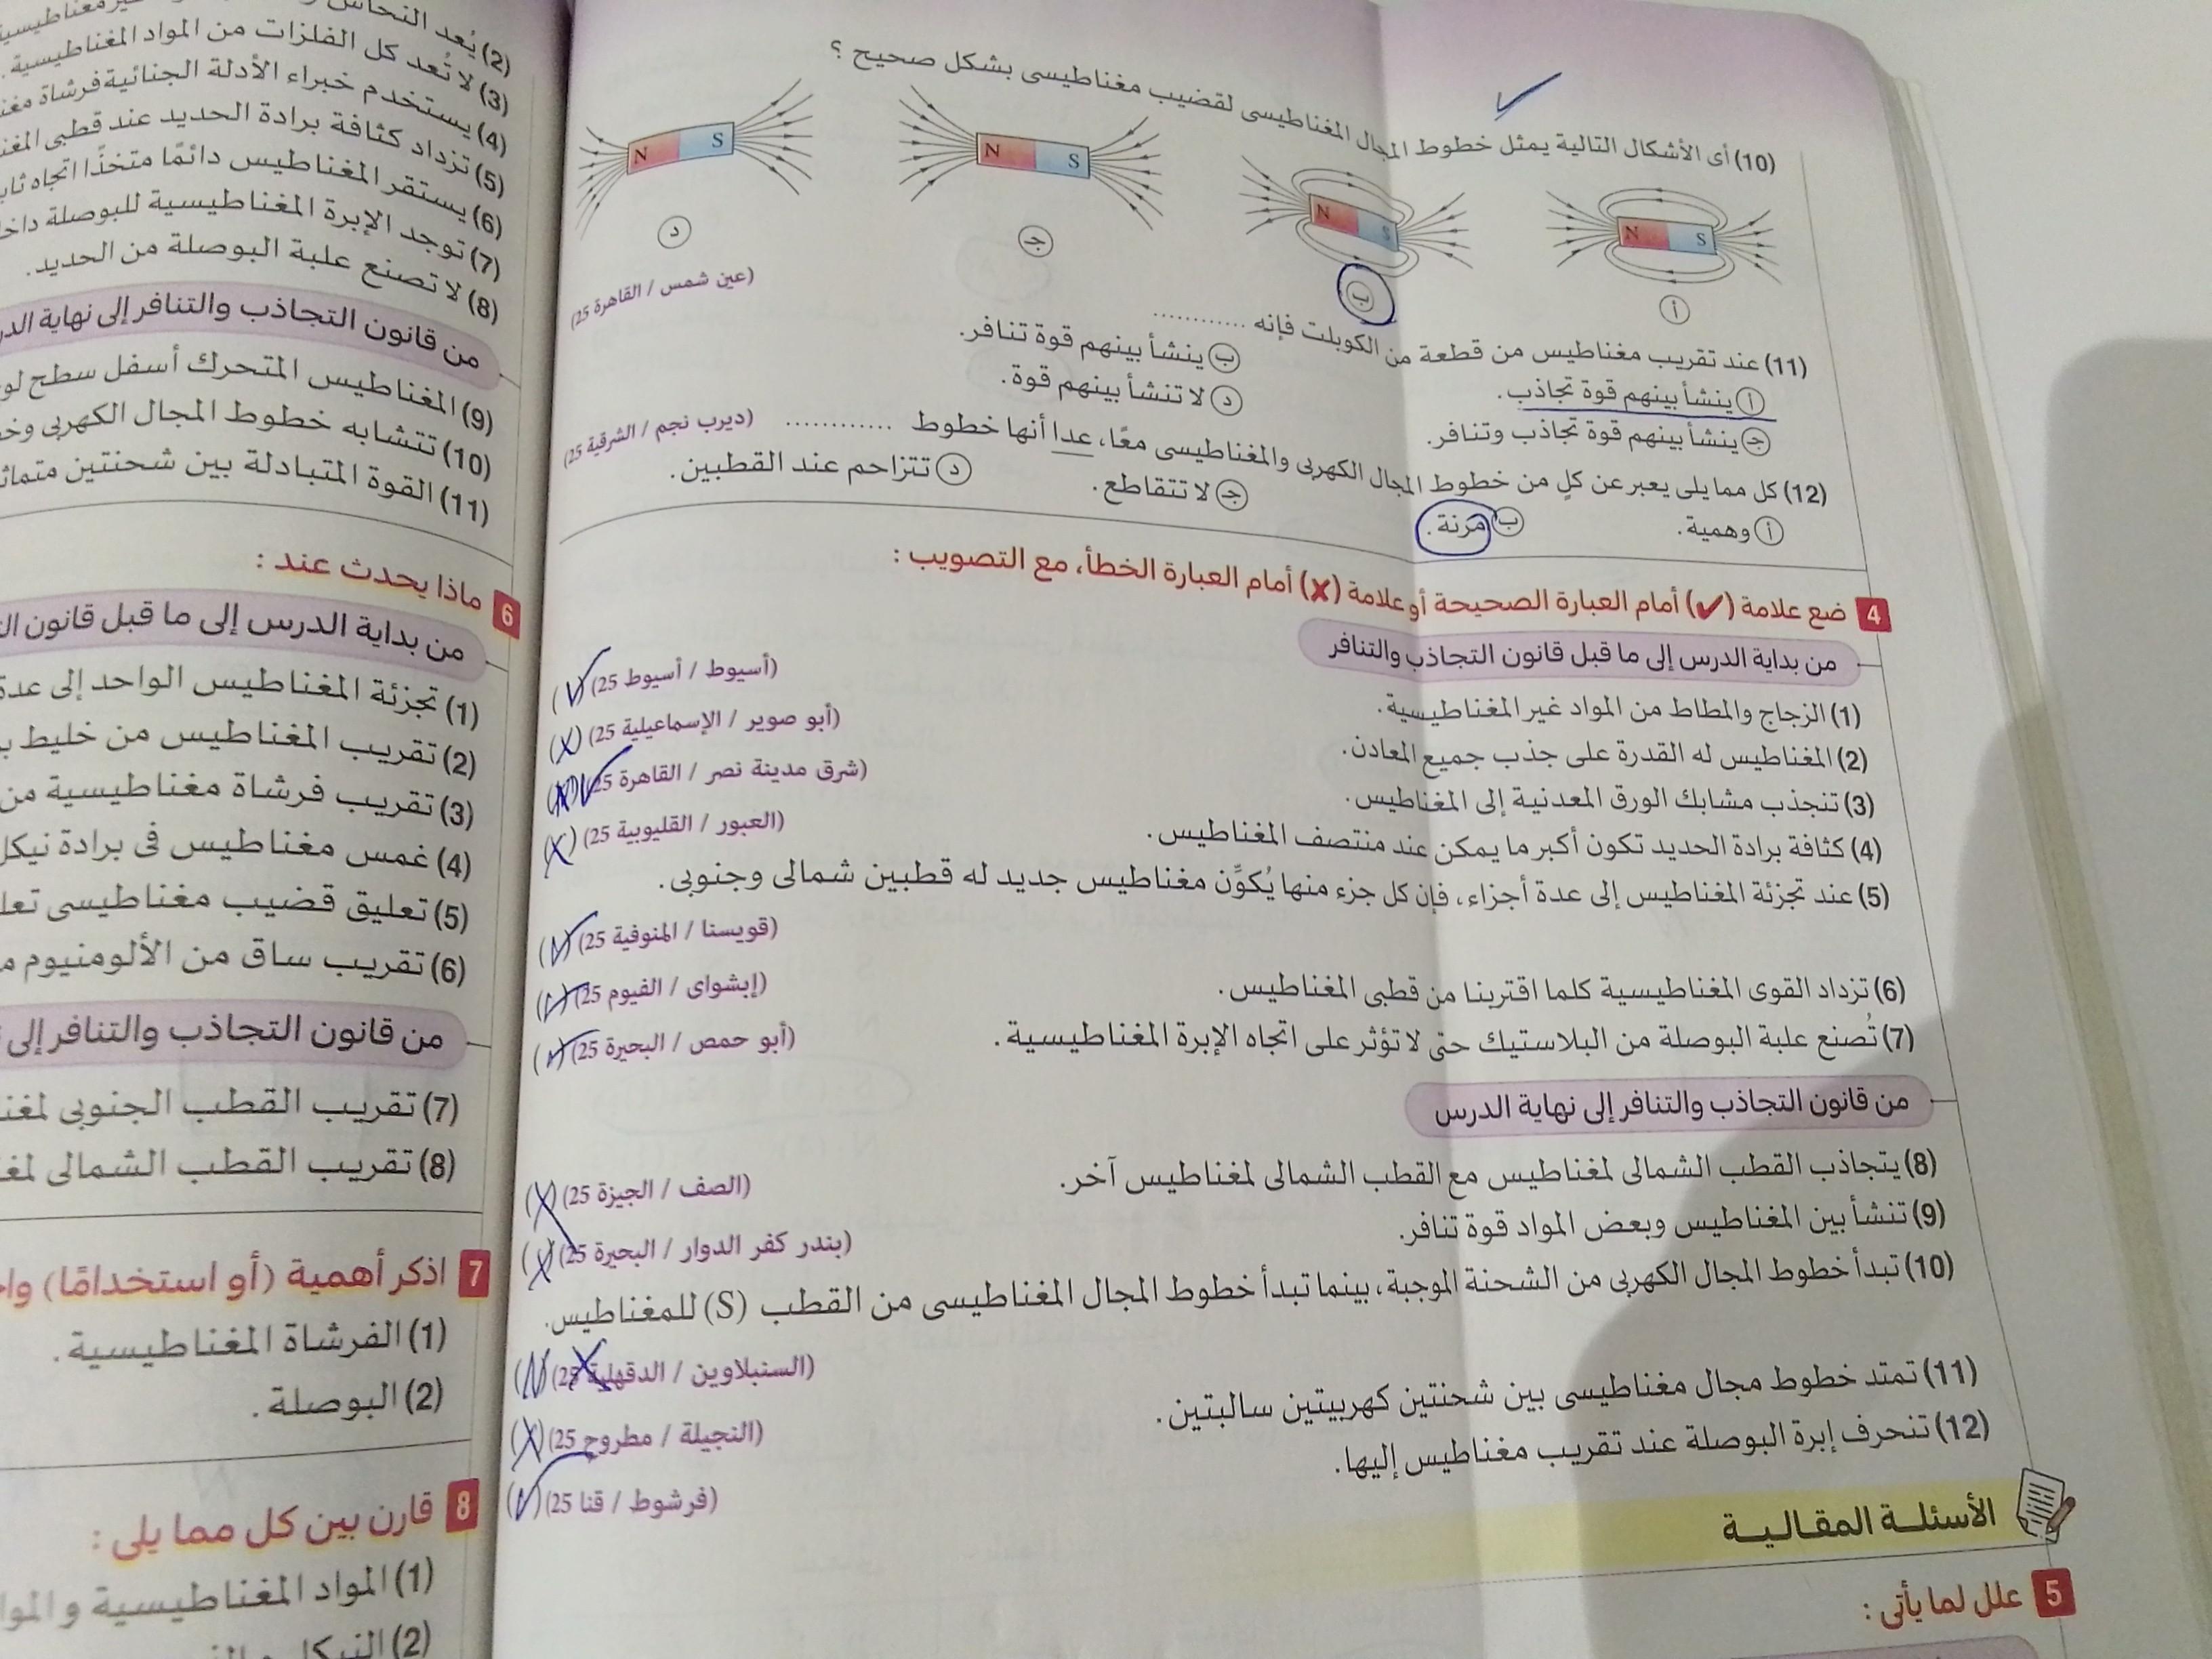 (10) أى الأشكال التالية يمثل خطوط المجال المغناطيسى لقضيب مغناطيسى بشكل صحيح ؟
N S
N S
N S
N S
أ
ب
جـ
د
(11) عند تقريب مغناطيس من قطعة من الكوبلت فإنه ............ (عين شمس / القاهرة 25)
أ ينشأ بينهم قوة تجاذب.
ب ينشأ بينهم قوة تنافر.
جـ ينشأ بينهم قوة تجاذب وتنافر.
د لا تنشأ بينهم قوة.
(12) كل مما يلى يعبر عن كلٍ من خطوط المجال الكهربى والمغناطيسى معًا، عدا أنها خطوط ............ (ديرب نجم / الشرقية 25)
أ وهمية.
ب مرنة.
جـ لا تتقاطع.
د تتزاحم عند القطبين.
4 ضع علامة (✓) أمام العبارة الصحيحة أو علامة (✗) أمام العبارة الخطأ، مع التصويب :
من بداية الدرس إلى ما قبل قانون التجاذب والتنافر
(1) الزجاج والمطاط من المواد غير المغناطيسية. (أسيوط / أسيوط 25) (✓)
(2) المغناطيس له القدرة على جذب جميع المعادن. (أبو صوير / الإسماعيلية 25) (X)
(3) تنجذب مشابك الورق المعدنية إلى المغناطيس. (شرق مدينة نصر / القاهرة 25) ✓
(4) كثافة برادة الحديد تكون أكبر ما يمكن عند منتصف المغناطيس. (العبور / القليوبية 25) (X)
(5) عند تجزئة المغناطيس إلى عدة أجزاء، فإن كل جزء منها يُكوِّن مغناطيس جديد له قطبين شمالى وجنوبى.
(قويسنا / المنوفية 25) (✓)
(6) تزداد القوى المغناطيسية كلما اقتربنا من قطبى المغناطيس. (إبشواى / الفيوم 25) (✓)
(7) تُصنع علبة البوصلة من البلاستيك حتى لا تؤثر على اتجاه الإبرة المغناطيسية. (أبو حمص / البحيرة 25) (✓)
من قانون التجاذب والتنافر إلى نهاية الدرس
(8) يتجاذب القطب الشمالى لمغناطيس مع القطب الشمالى لمغناطيس آخر. (الصف / الجيزة 25) (X)
(9) تنشأ بين المغناطيس وبعض المواد قوة تنافر. (بندر كفر الدوار / البحيرة 25) (X)
(10) تبدأ خطوط المجال الكهربى من الشحنة الموجبة، بينما تبدأ خطوط المجال المغناطيسى من القطب (S) للمغناطيس.
(السنبلاوين / الدقهلية 25) X
(11) تمتد خطوط مجال مغناطيسى بين شحنتين كهربيتين سالبتين. (النجيلة / مطروح 25) (X)
(12) تنحرف إبرة البوصلة عند تقريب مغناطيس إليها. (فرشوط / قنا 25) (✓)
الأسئلة المقالية
5 علل لما يأتى :
(2) يُعد النحاس
(3) لا تُعد كل الفلزات من المواد المغناطيسية.
(4) يستخدم خبراء الأدلة الجنائية فرشاة
(5) تزداد كثافة برادة الحديد عند قطبى
(6) يستقر المغناطيس دائمًا متخذًا اتجاه
(7) توجد الإبرة المغناطيسية للبوصلة
(8) لا تصنع علبة البوصلة من الحديد.
من قانون التجاذب والتنافر إلى نهاية
(9) المغناطيس المتحرك أسفل سطح
(10) تتشابه خطوط المجال الكهربى
(11) القوة المتبادلة بين شحنتين
6 ماذا يحدث عند :
من بداية الدرس إلى ما قبل قانون
(1) تجزئة المغناطيس الواحد إلى عدة
(2) تقريب المغناطيس من خليط
(3) تقريب فرشاة مغناطيسية من
(4) غمس مغناطيس فى برادة نيكل
(5) تعليق قضيب مغناطيسى
(6) تقريب ساق من الألومنيوم
من قانون التجاذب والتنافر إلى
(7) تقريب القطب الجنوبى
(8) تقريب القطب الشمالى
7 اذكر أهمية (أو استخدامًا)
(1) الفرشاة المغناطيسية.
(2) البوصلة.
8 قارن بين كل مما يلى :
(1) المواد المغناطيسية
(2) النيكل